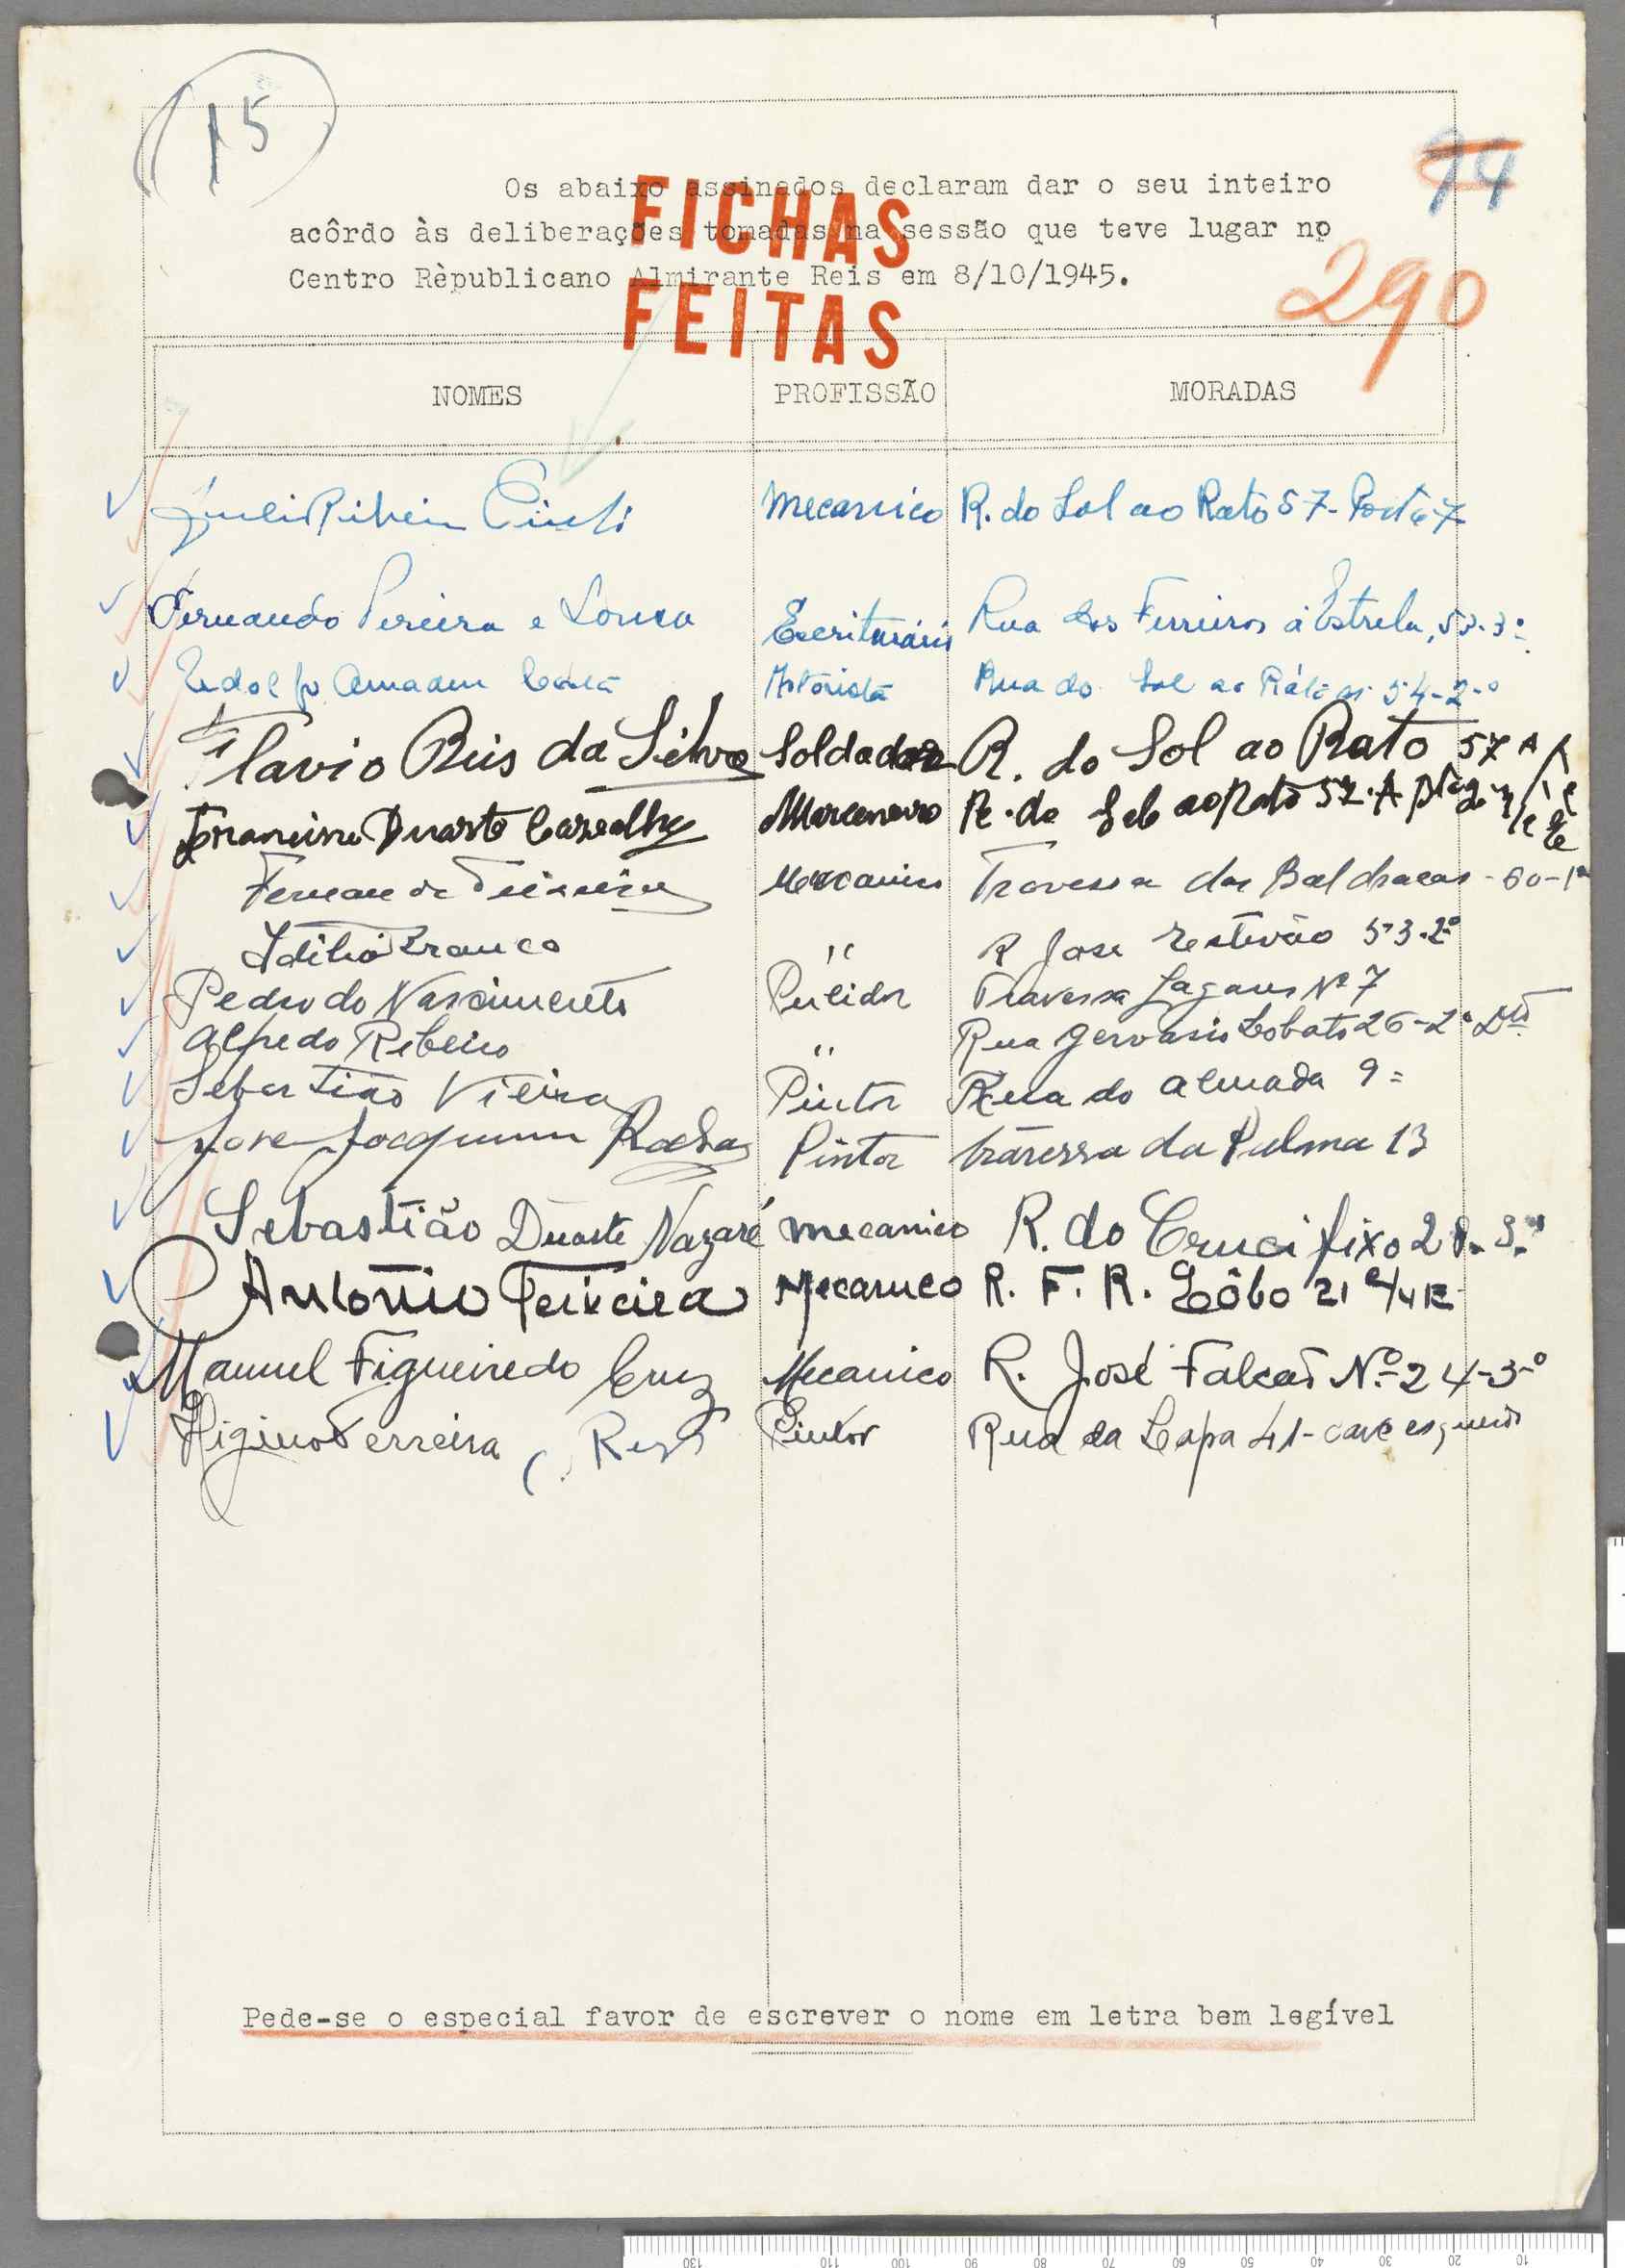 15
94
Os abaixo assinados declaram dar o seu inteiro
acôrdo às deliberações tomadas na sessão que teve lugar no
Centro Rèpublicano Almirante Reis em 8/10/1945.
FICHAS
FEITAS
290
NOMES PROFISSÃO MORADAS
Ribeiro mecanico R. do Sol ao Rato 57-Porta 7
Fernando Pereira e Sousa Escriturário Rua dos Ferreiros á Estrela, 53-3º
Amadeu Costa Motorista Rua do Sol ao Ráto 54-2º
Flavio Reis da Silva Soldador R. do Sol ao Rato 57 A
Francisco Duarte Carvalho Marceneiro R. do Sol ao Rato 57-A
Fernando Teixeira Mecanico Travessa das Baldracas - 60-1º
Idilio Franco " R José Estevão 53.2º
Pedro do Nascimento Polidor Travessa Lagares Nº 7
Alfredo Ribeiro " Rua Gervasio Lobato 26-2º Dtº
Sebastião Vieira Pintor Rua do Almada 9
José Joaquim Rocha Pintor travessa da Palma 13
Sebastião Duarte Nazaré mecanico R. do Crucifixo 28-3º
Antonio Teixeira Mecanico R. F. R. Lôbo 21
Manuel Figueiredo Cruz Mecanico R. José Falcão Nº 24-3º
Higino Ferreira Pintor Rua da Lapa 41-cave esquerdo
Pede-se o especial favor de escrever o nome em letra bem legível